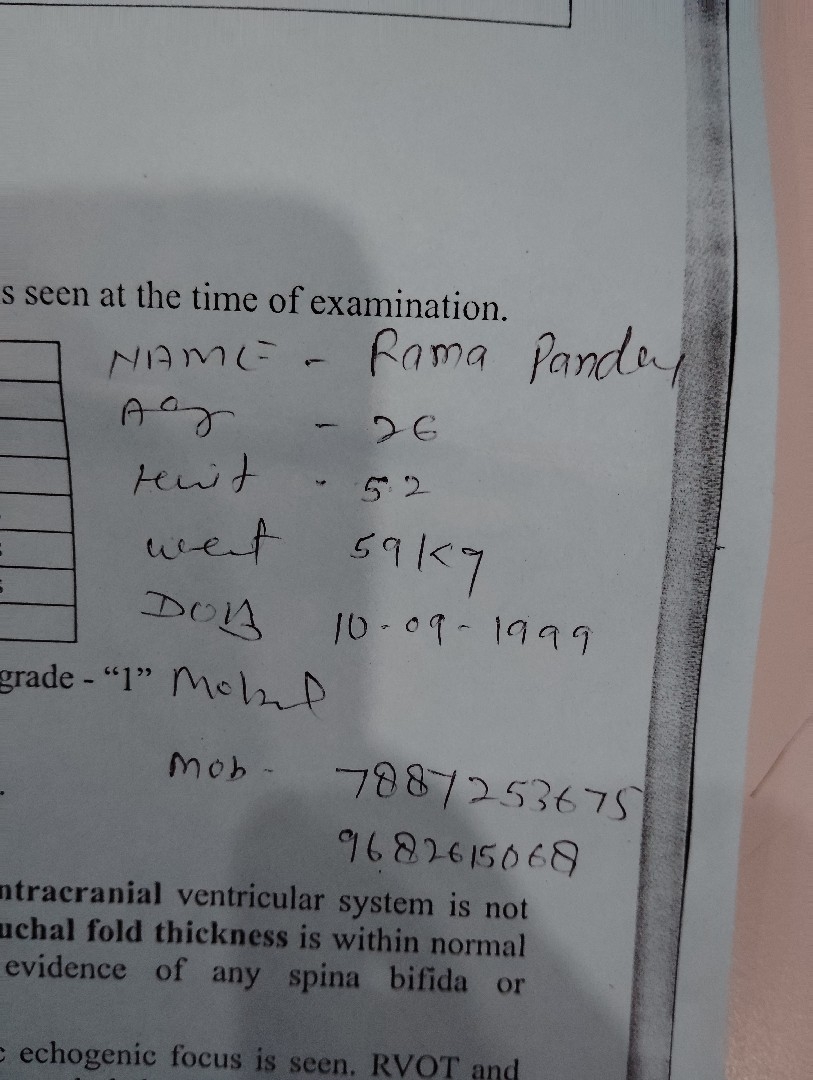 s seen at the time of examination.
NAME - Rama Panday
Agy - 26
Heuit - 5.2
weet 59 kg
DOB 10-09-1999
grade - “1”
Mob - 7887253675
9682615068
ntracranial ventricular system is not
uchal fold thickness is within normal
evidence of any spina bifida or
echogenic focus is seen. RVOT and